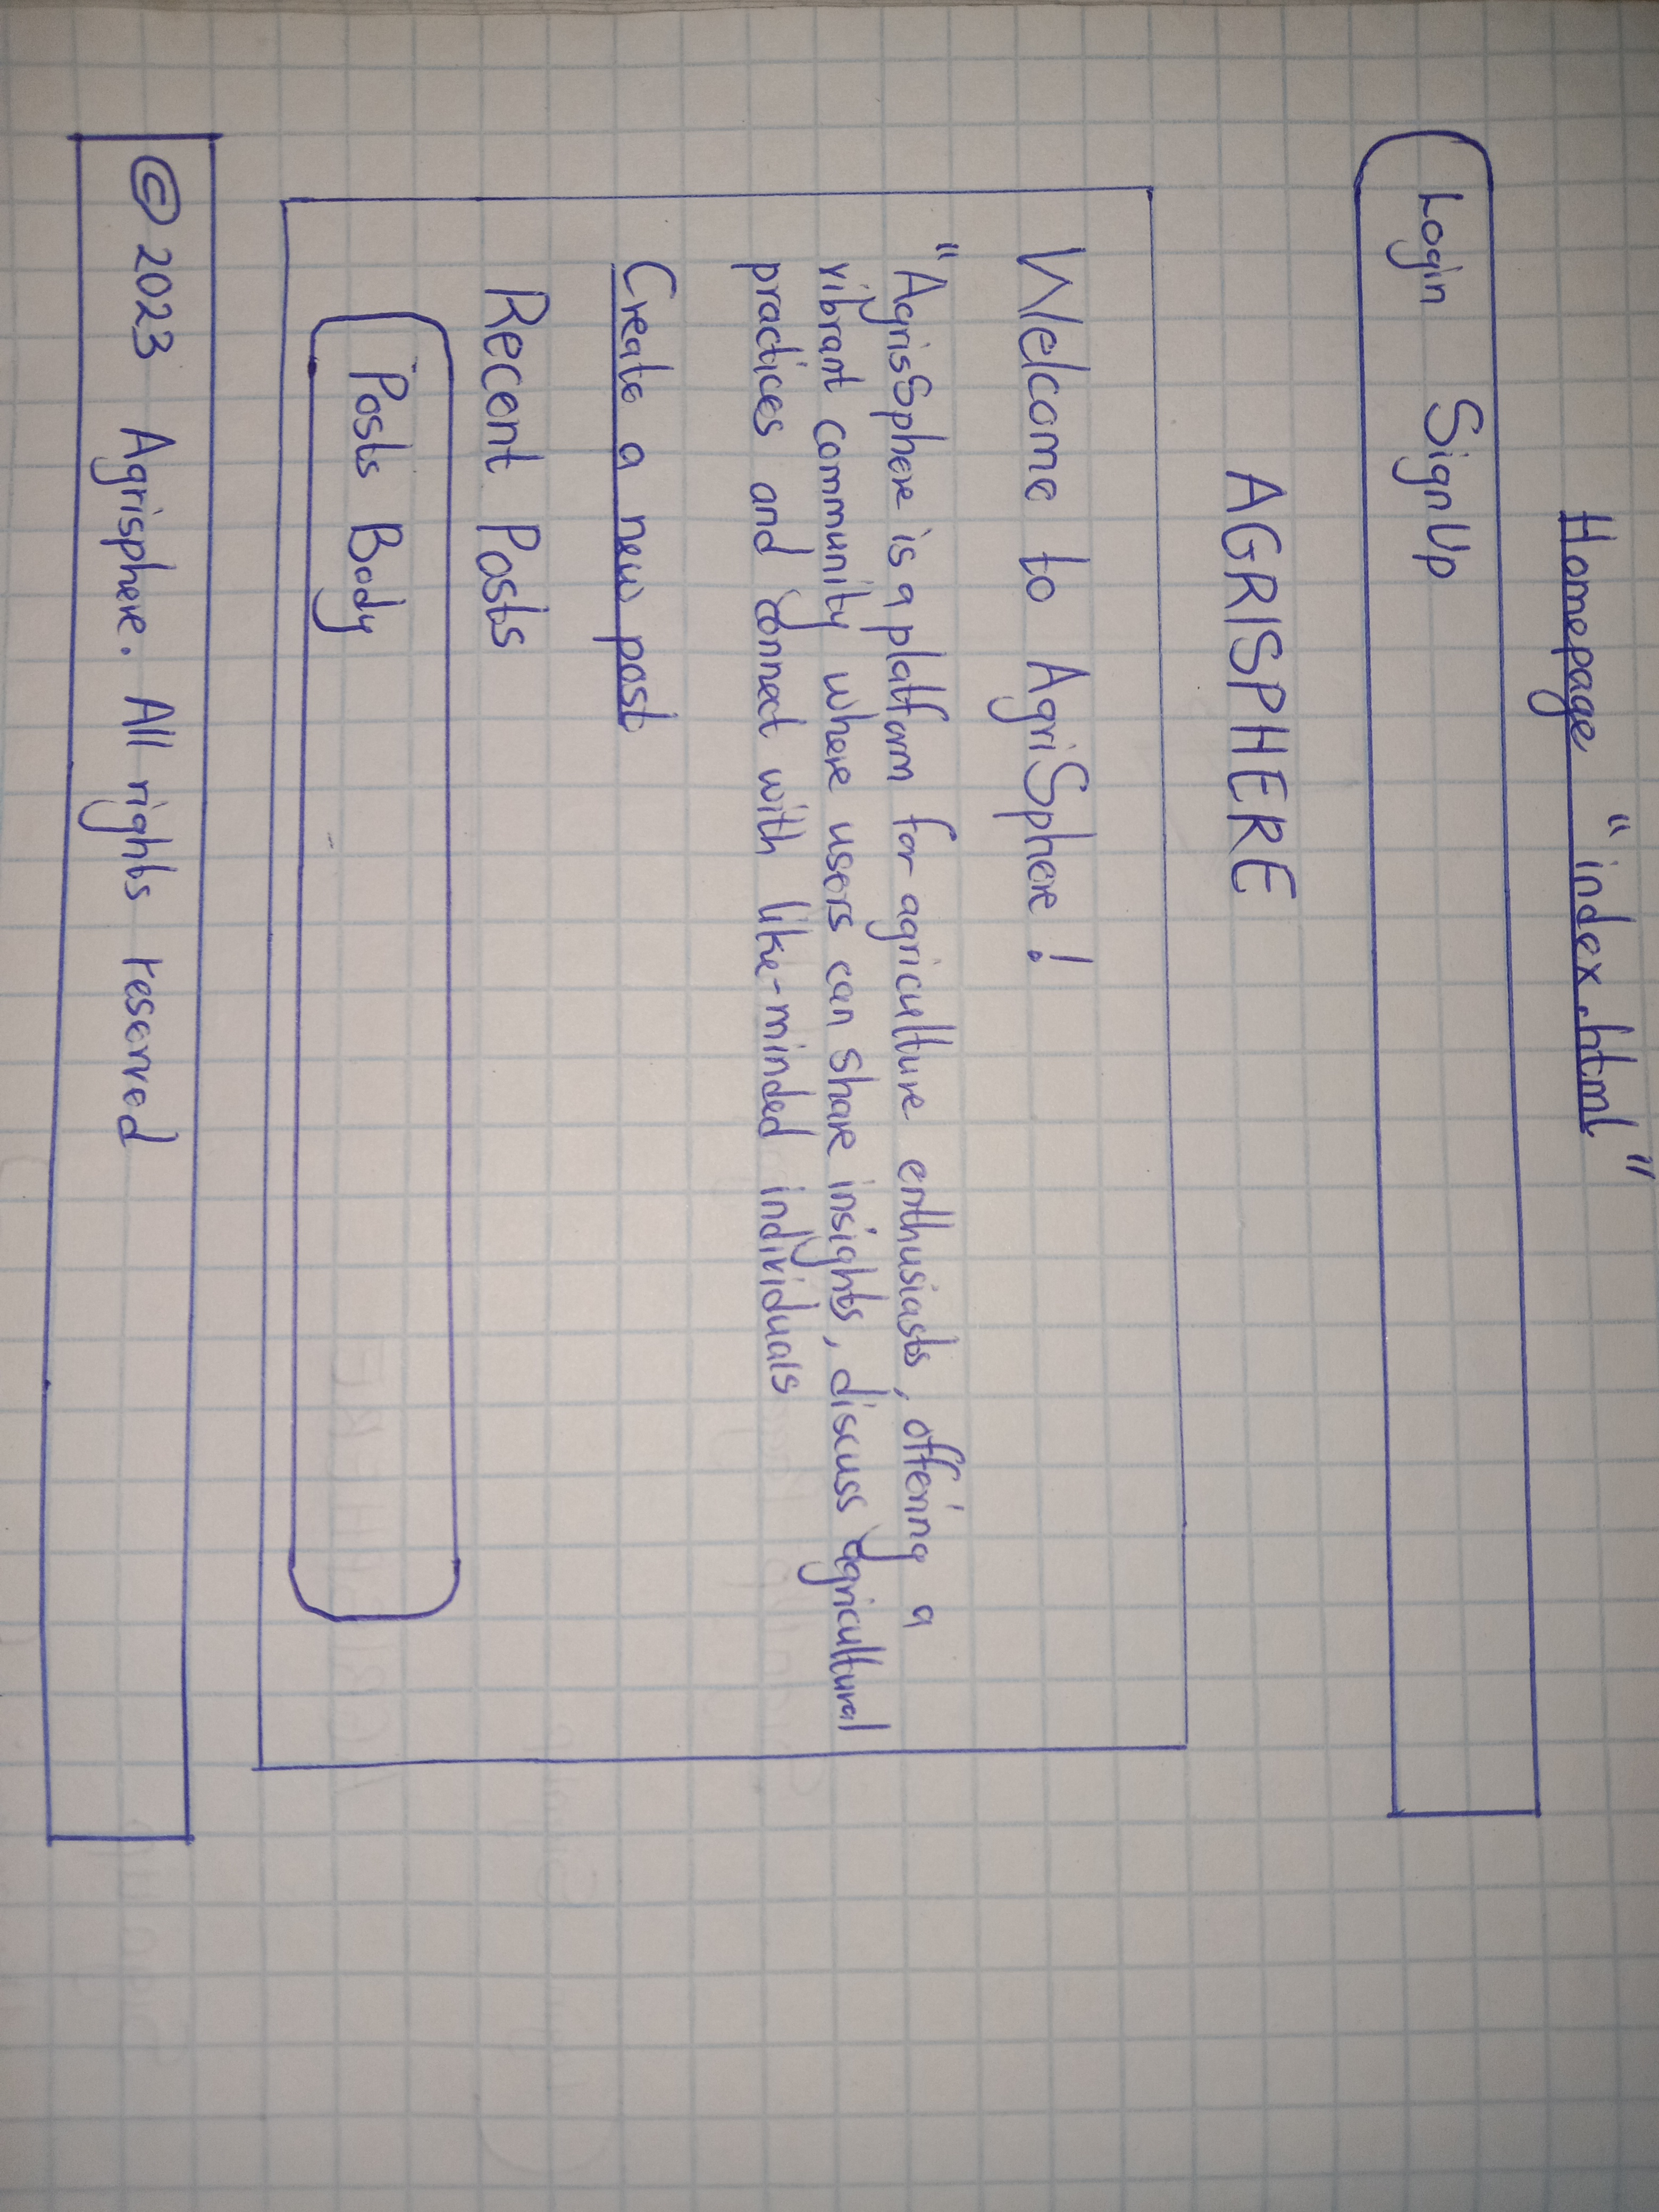 Homepage "index.html"
Login SignUp
AGRISPHERE
Welcome to AgriSphere!
"AgrisSphere is a platform for agriculture enthusiasts, offering a
vibrant community where users can share insights, discuss agricultural
practices and connect with like-minded individuals
Create a new post
Recent Posts
Posts Body
© 2023 Agrisphere. All rights reserved